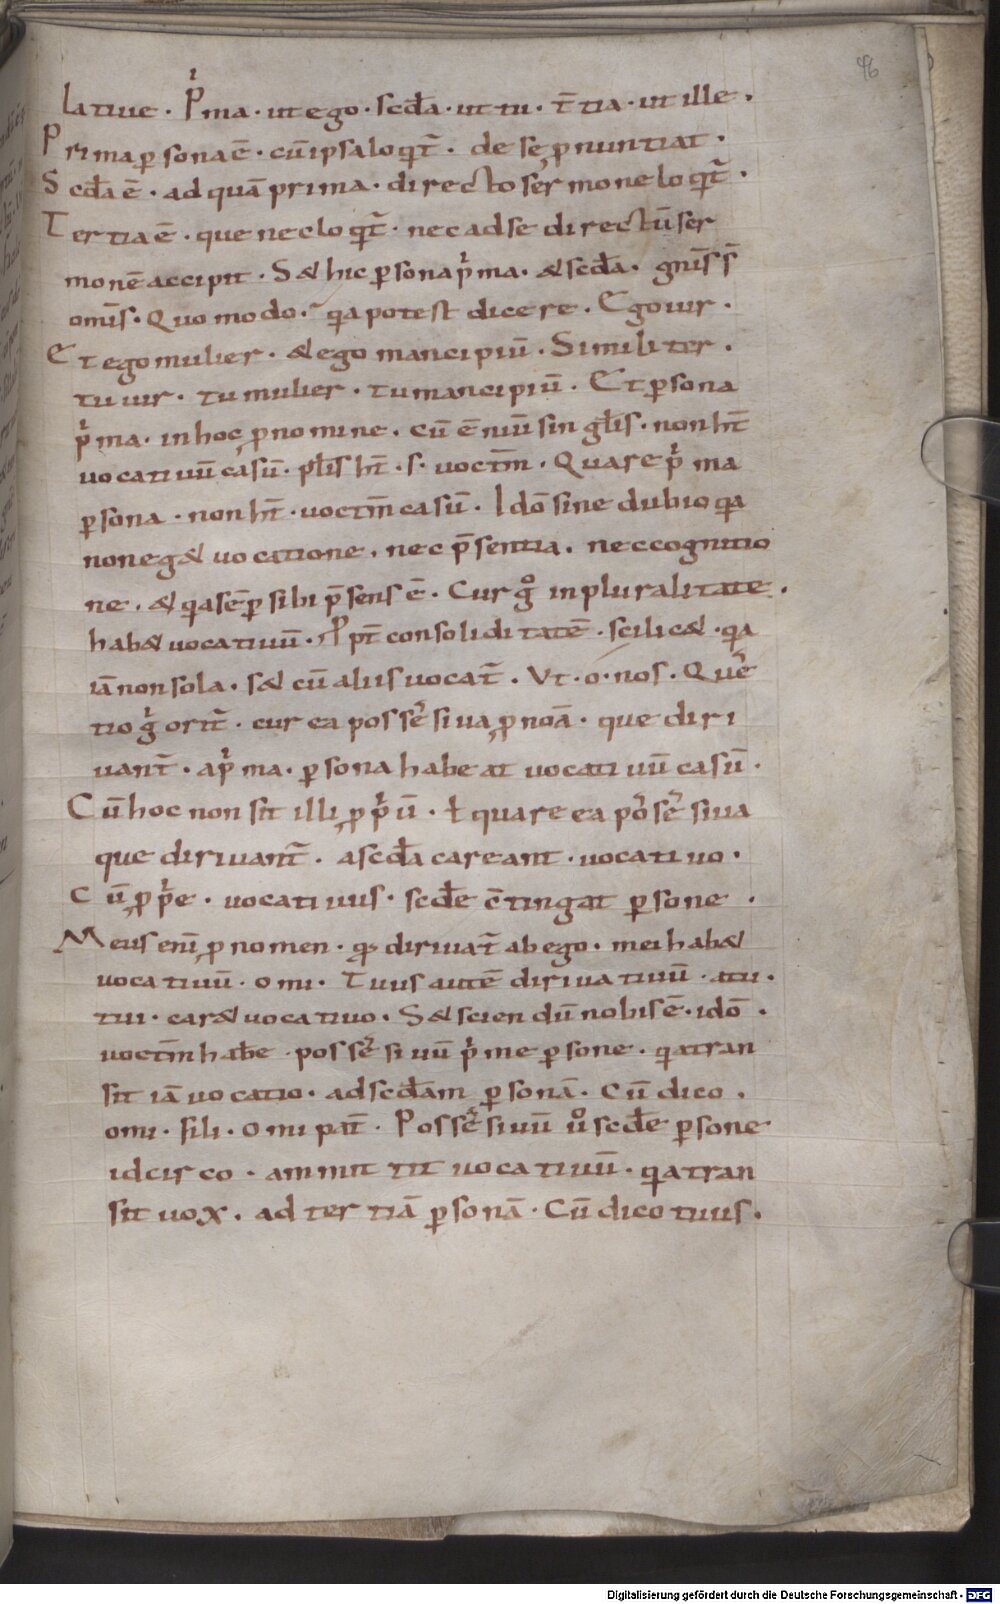 46
latiue · P͛ma · ut ego · scđa · ut tu · t̄tia · ut ille ·
Prima ꝑsona ē · cū ipsa loqt̄ · de se ꝓnuntiat ·
Scđa ē · ad quā prima · directo sermone loqt̄ ·
Tertia ē · que nec loqt̄ · nec ad se directū ser
monē accipit · S& hic ꝑsona p͛ma · & scđa · gn̄is s̄
omīs · Quomodo · qa potest dicere · Ego uir ·
Et ego mulier · & ego mancipiū · Similiter ·
tu uir · tu mulier · tu mancipiū · Et ꝑsona
p͛ma · in hoc ꝓnomine · cū ē niūsin głis · non ht̄
uocatiuū casū · płis ht̄ · s · uoctm̄ · Quare p͛ma
ꝑsona · non ht̄ · uoctm̄ casū · Idō sine dubio qa
non eg& uocatione · nec p̄sentia · nec cognitio
ne · & qa sēꝑ sibi p̄sens ē · Cur gͦ in pluralitate ·
hab& uocatiuū · Ppt̄ consoliditatē · scilic& · qa
iā non sola · s& cū aliis uocat̄ · Vt · o · nos · Quē͛
tio g͛ orit̄ · cur ea possē͛siua ꝓnoā · que diri
uant̄ · a p͛ma · ꝑsona habeat uocatiuū casū ·
Cū hoc non sit illi ꝓp͛ū · ł quare ea po͛sē͛siua
que diriuant̄ · a scđa careant · uocatiuo ·
Cū ꝓp͛e · uocatiuus · scđe c̄tingat ꝑsone ·
Meus enī ꝓnomen · qꝫ diriuat̄ ab ego · mei hab&
uocatiuū · o mi · Tuus autē diriuatiuū · a tu ·
tui · car& uocatiuo · S& sciendū nobis ē · idō ·
uoctm̄ habe · possē͛siuū p͛me ꝑsone · qa tran
sit iā uocatio · ad scđam ꝑsonā · Cū dico ·
o mi · fili · o mi pat̄ · Possē͛siuū uͦ scđe ꝑsone
idcirco · ammittit uocatiuū · qa tran
sit uox · ad tertiā ꝑsonā · Cū dico tuus ·
Digitalisierung gefördert durch die Deutsche Forschungsgemeinschaft - DFG